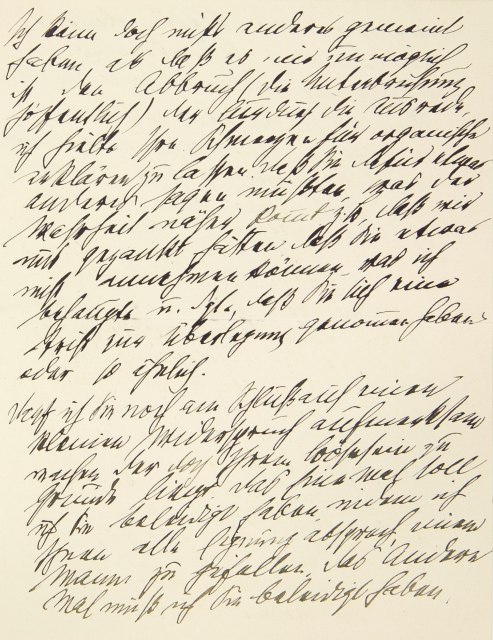 Ich kann doch nicht anderes gemeint
haben, als daß es mir unmöglich
ist den Abbruch (die Unterbrechung
hoffentlich) der durch die
ich hielte Ihre Schmerzen für organische
erklären zu lassen, daß Sie etwas
anderes sagen müßten, was der
Wahrheit näher kommt, z. B. daß wir
uns gezankt hätten, daß Sie etwas
nicht annehmen können, was ich
behaupte u. dgl., daß Sie sich eine
Frist zur Überlegung genommen haben
oder so ähnlich.
Darf ich Sie noch am Schluß auf einen
kleinen Widerspruch aufmerksam
machen, der doch Ihrem Bösesein zu
Grunde liegt. Das eine Mal soll
ich Sie beleidigt haben, indem ich
Ihnen alle Eignung absprach, einem
Manne zu gefallen. Das andere
Mal muß ich Sie beleidigt haben,